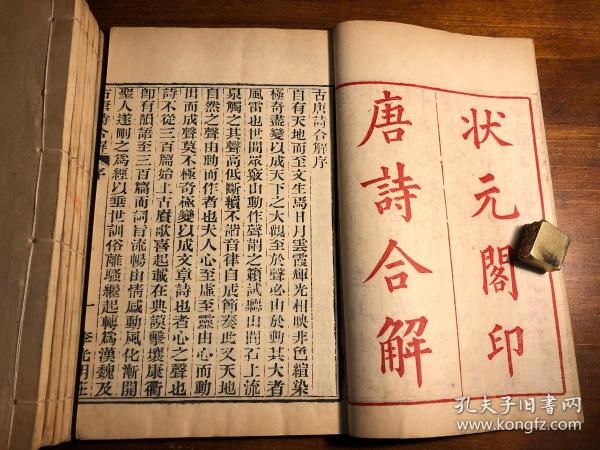 狀元閣印
唐詩合解
古唐詩合解序
自有天地而至文生焉日月雲霞輝光相映非色絢染
極奇盡變以成天下之大觀至於聲必由於動其大者
風雷也世間眾竅由動作聲謂之籟試聽山間石上流
泉觸之其聲高低斷續不諧音律自成節奏此又天地
自然之聲由動而作者也夫人心至虛至靈由心而動
由而成聲莫不極奇極變以成文章詩也者心之聲也
詩不從三百篇始上古賡歌喜起載在典謨擊壤康衢
即有韻語至三百篇而詞旨流暢由情感動風化漸開
聖人遂刪之為經以垂世訓俗離騷繼起轉為漢魏及
古唐詩合解
序
一
李光明莊
孔夫子旧书网
www.kongfz.com